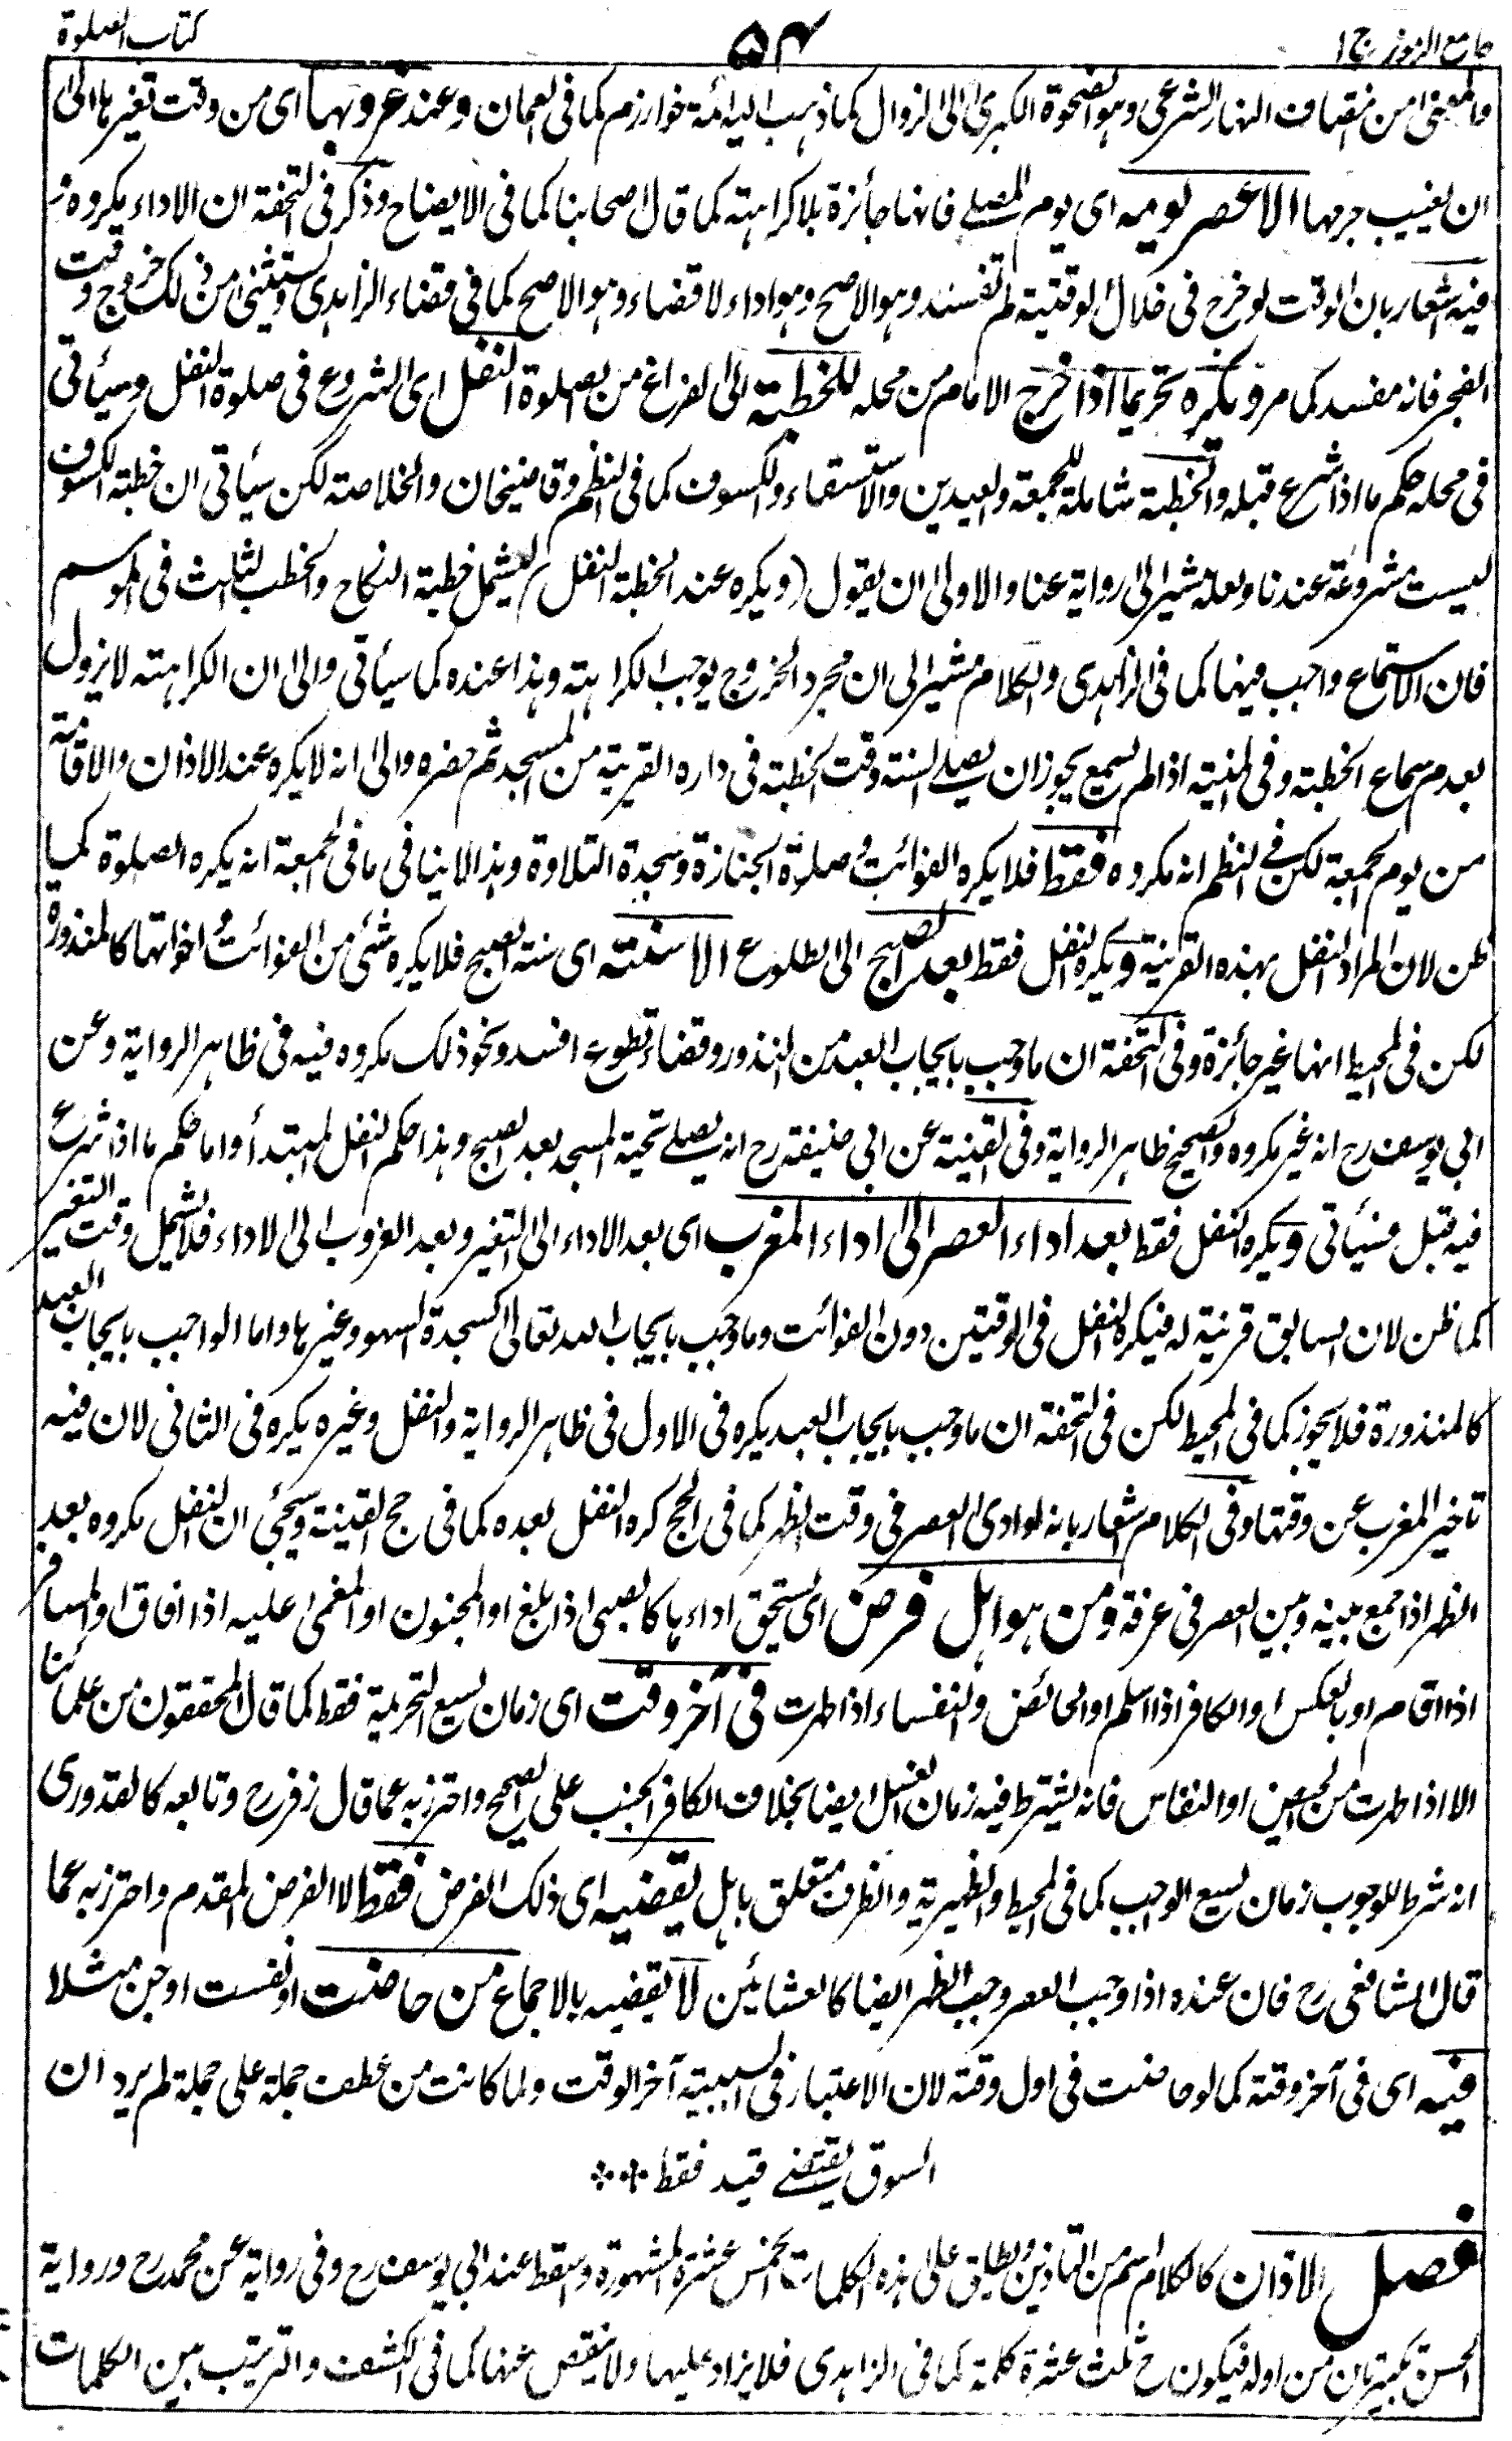 جامع الرموز ج ١
٥٤
كتاب الصلوة
والمعنى من انتصاف النهار الشرعى وهو الضحوة الكبرى الى الزوال كما ذهب اليه ائمة خوارزم كما فى العمان وعند غروبها اى من وقت تغيرها الى
ان يغيب جرمها الا عصر يومه اى يوم المصلے فانها جائزة بلا كراهته كما قال اصحابنا كما فى الايضاح وذكر فى التحفة ان الاداء مكروه و
فيه اشعار بان الوقت لو خرج فى خلال الوقتية لم تفسد وهو الاصح وهو اداء لا قضاء وهو الاصح كما فى قضاء الزاهدى ويستثنى من ذلك خروج وقت
الفجر فانه مفسد كما مر ويكره تحريما اذا خرج الامام من محله للخطبة الى الفراغ من الصلوة النفل اى الشروع فى صلوة النفل وسيأتى
فى محله حكم ما اذا شرع قبله والخطبة شاملة للجمعة والعيدين والاستسقاء والكسوف كما فى النظم وقاضيخان والخلاصة لكن سيأتى ان خطبة الكسوف
ليست مشروعة عندنا ولعله مشير الى رواية عنا والاولى ان يقول (ويكره عند الخطبة النفل) ليشمل خطبة النكاح والخطب الثلث فى الموسم
فان الاستماع واجب فيها كما فى الزاهدى والكلام مشير الى ان مجرد الخروج يوجب الكراهته وهذا عنده كما سيأتى والى ان الكراهته لا يزول
بعدم سماع الخطبة وفى المنية اذا لم يسمع يجوز ان يصلے السنة وقت الخطبة فى داره القريبة من المسجد ثم حضره والى انه لا يكره عند الاذان والاقامة
من يوم الجمعة لكن فے النظم انه مكروه فقط فلا يكره الفوائت وصلوة الجنازة وسجدة التلاوة وهذا لا ينافى ما فى الجمعة انه يكره الصلوة كما
ظن لان المراد النفل بهذه القرينة ويكره النفل فقط بعد الصبح الى الطلوع الا سنته اى سنة الصبح فلا يكره شئ من الفوائت واخواتها كالمنذورة
لكن فى المحيط انها غير جائزة وفى التحفة ان ما وجب بايجاب العبد من النذور وقضاء تطوع افسد ونحو ذلك مكروه فيه فى ظاهر الرواية وعن
ابى يوسف رح انه غير مكروه والصحيح ظاهر الرواية وفى القنية عن ابى حنيفة رح انه يصلے تحية المسجد بعد الصبح وهذا حكم النفل المبتدأ واما حكم ما اذا شرع
فيه قبل فسيأتى ويكره النفل فقط بعد اداء العصر الى اداء المغرب اى بعد الاداء الى التغير وبعد الغروب الى الاداء فلا يشمل وقت التغير
كما ظن لان السابق قرينة له فيكره النفل فى الوقتين دون الفوائت وما وجب بايجاب الله تعالى كسجدة السهو وغيرها واما الواجب بايجاب العبد
كالمنذورة فلا يجوز كما فى المحيط لكن فى التحفة ان ما وجب بايجاب العبد يكره فى الاول فى ظاهر الرواية والنفل وغيره يكره فى الثانى لان فيه
تاخير المغرب عن وقتها وفى الكلام اشعار بانه لو ادى العصر فى وقت الظهر كما فى الحج كره النفل بعده كما فى حج القنية وسيجئ ان النفل مكروه بعد
الظهر اذا جمع بينه وبين العصر فى عرفة ومن هو اهل فرض اى يستحق اداءها كالصبى اذا بلغ او المجنون او المغمى عليه اذا افاق او المسافر
اذا اقام او بالعكس او الكافر اذا اسلم او الحائض والنفساء اذا طهرت فى آخر وقت اى زمان يسع التحريمة فقط كما قال المحققون من علمائنا
الا اذا طهرت من الحيض او النفاس فانه يشترط فيه زمان الغسل ايضا بخلاف الكافر الجنب على الصحيح واحترز به عما قال زفر رح وتابعه كالقدورى
انه شرط للوجوب زمان يسع الواجب كما فى المحيط والظهيرية والظرف متعلق باهل يقضيه اى ذلك الفرض فقط لا الفرض المقدم واحترز به عما
قال الشافعى رح فان عنده اذا وجب العصر وجب الظهر ايضا كالعشائين لا يقضيه بالاجماع من حاضت او نفست او جن مثلا
فيه اى فى آخر وقته كما لو حاضت فى اول وقته لان الاعتبار فى السببية آخر الوقت ولما كانت من عطف جملة على جملة لم يرد ان
السوق يقتضے قيد فقط
فصل الاذان كالكلام اسم من التاذين ويطلق على هذه الكلمات الخمس عشرة المشهورة واسقط عند ابى يوسف رح وفى رواية عن محمد رح ورواية
الحسن تكبيرتان من اوله فيكون ح ثلث عشرة كلمة كما فى الزاهدى فلا يزاد عليها ولا ينقص عنها كما فى الكشف والترتيب بين الكلمات